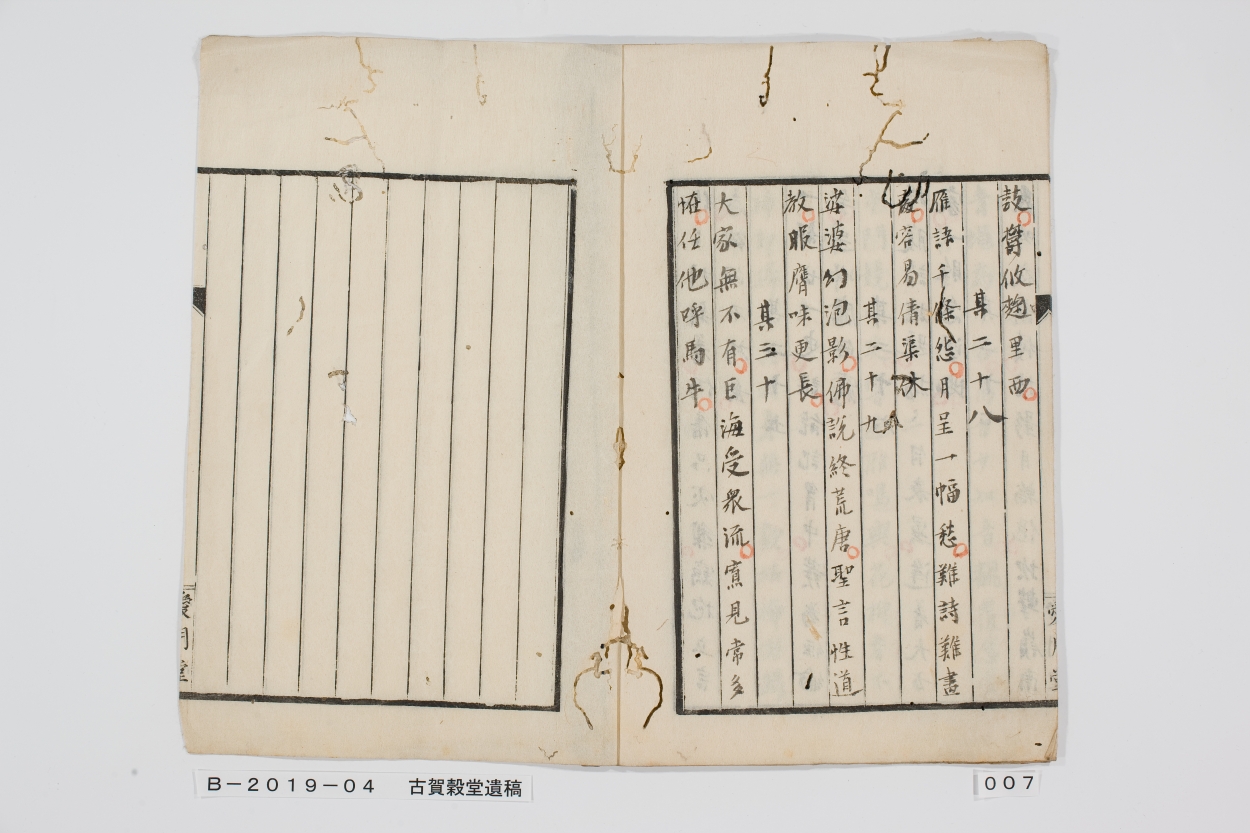 鼓欝攸麹里西
其二十八
雁語千條怨月呈一幅愁難詩難畫
處容易倩渠休
其二十九
娑婆幻泡影佛說終荒唐聖言性道
教暇膺味更長
其三十
大家無不有巨海受衆流寡見常多
怪任他呼馬牛
愛月堂
B－2019－04　古賀穀堂遺稿
007